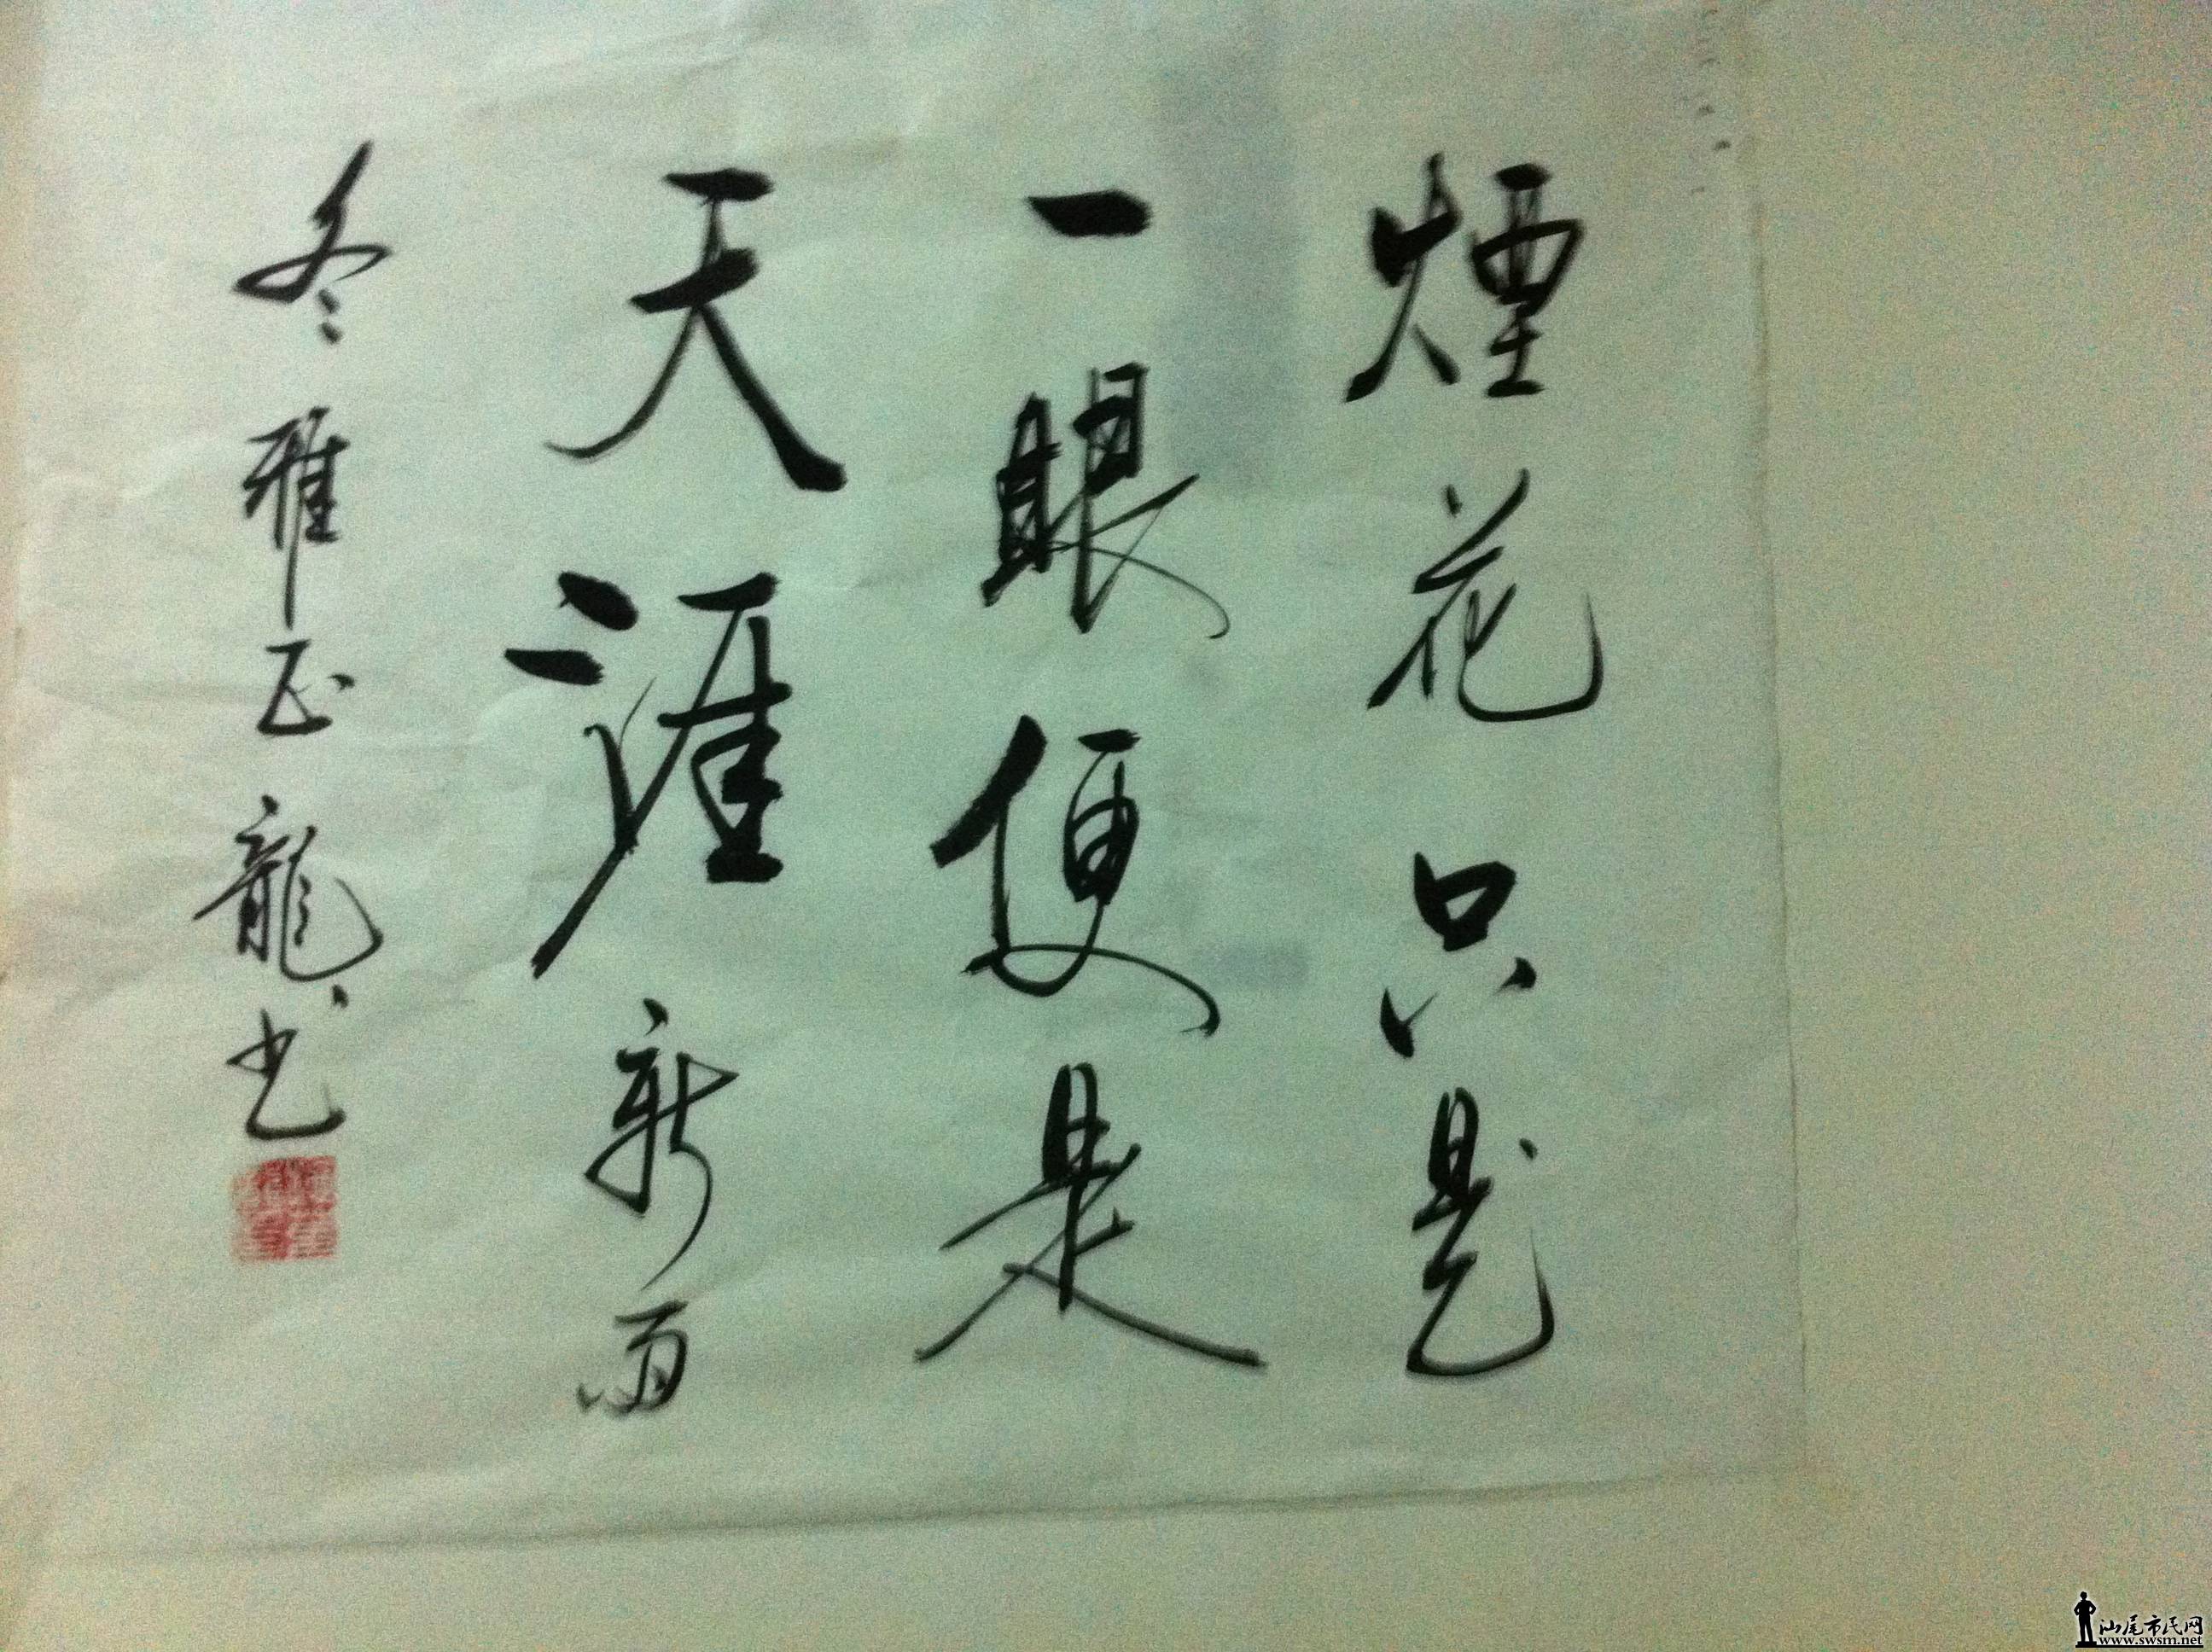 煙花只是
一眼便是
天涯新雨
冬雅正龍书
汕尾市民网
www.swsm.net